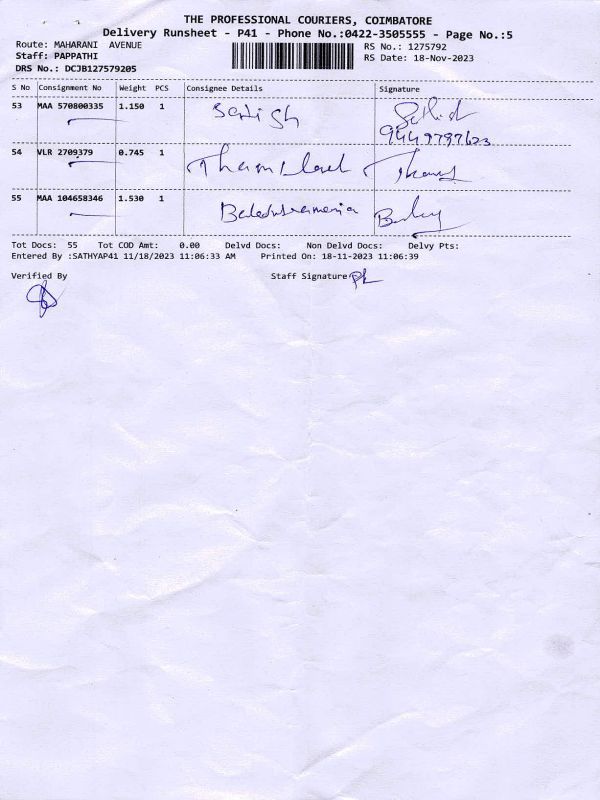 THE PROFESSIONAL COURIERS, COIMBATORE
Delivery Runsheet - P41 - Phone No.:0422-3505555 - Page No.:5
Route: MAHARANI AVENUE
RS No.: 1275792
Staff: PAPPATHI
RS Date: 18-Nov-2023
DRS No.: DCJB127579205
S No Consignment No Weight PCS Consignee Details Signature
53 MAA 570800335 1.150 1
54 VLR 2709379 0.745 1
55 MAA 104658346 1.530 1
Tot Docs: 55 Tot COD Amt: 0.00 Delvd Docs: Non Delvd Docs: Delvy Pts:
Entered By :SATHYAP41 11/18/2023 11:06:33 AM Printed On: 18-11-2023 11:06:39
Verified By Staff Signature